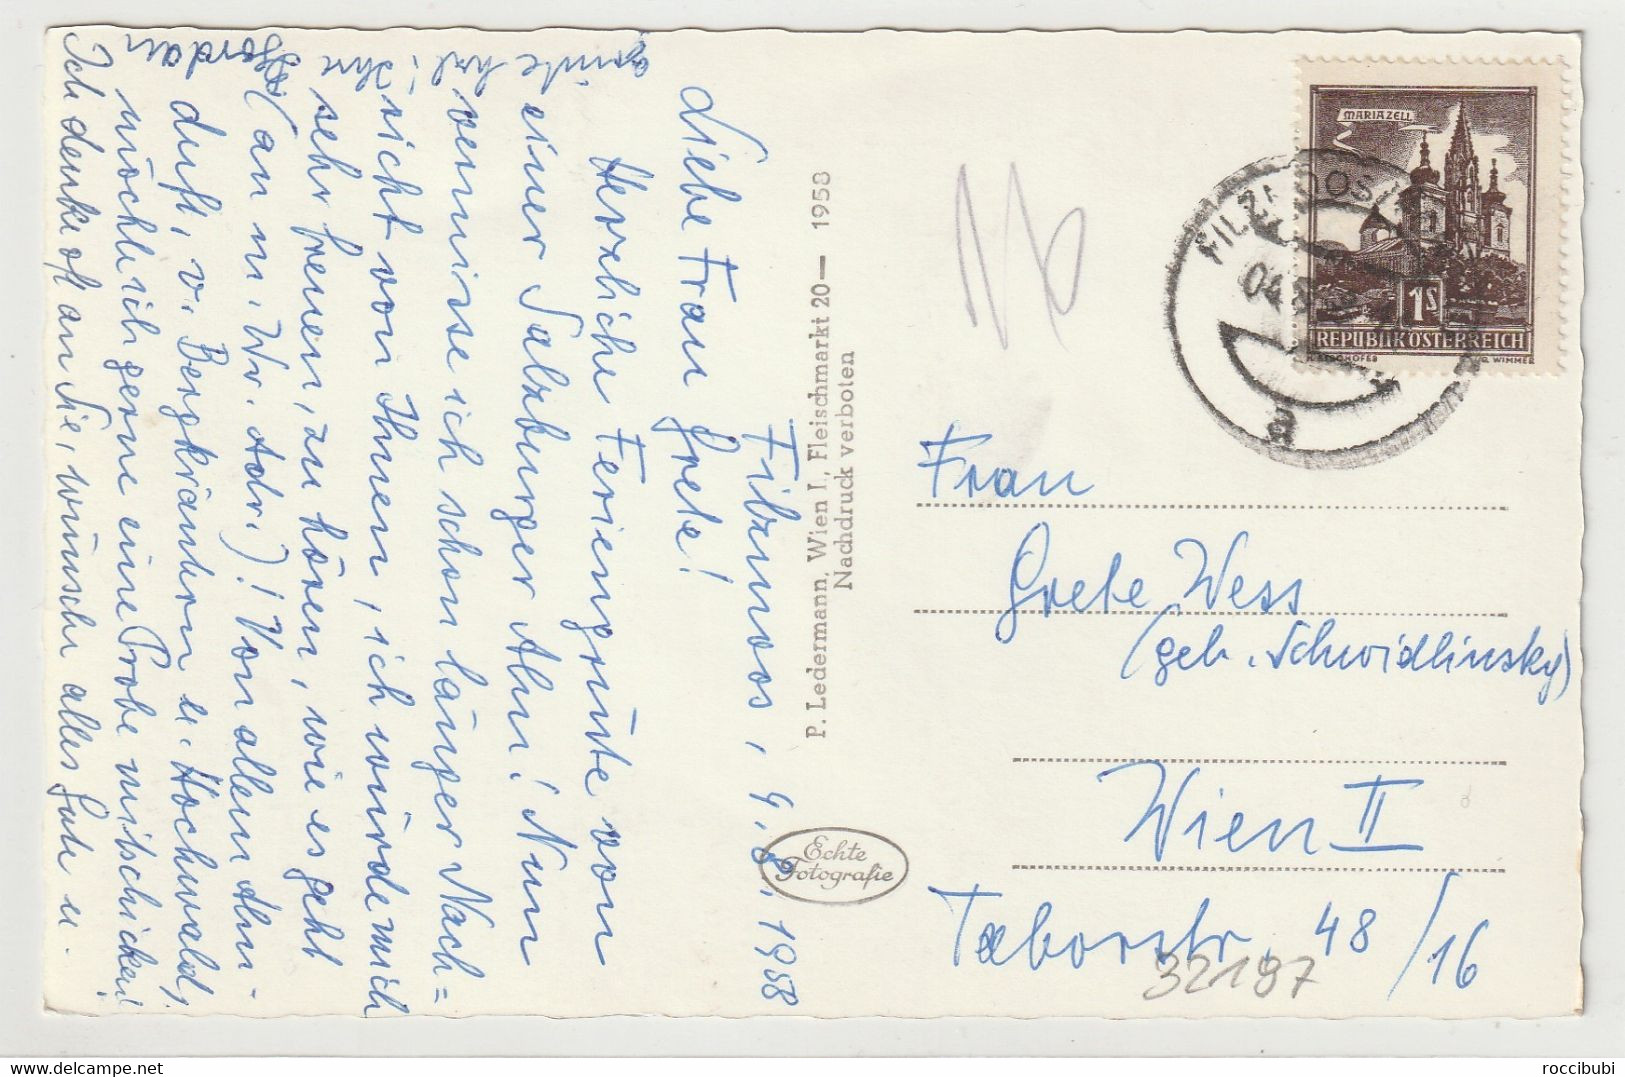 Filzmoos, 4.8.1958
Liebe Frau Grete!
Herrliche Feriengrüße von
einer Salzburger Alm! Nun
vermisse ich schon länger Nach=
richt von Ihnen, ich würde mich
sehr freuen, zu hören, wie es geht
(an m. Wr. Adr.)! Von allem Alm-
duft, v. Bergkräutern u. Hochwald,
möchte ich gerne eine Probe mitschicken!
Ich denke oft an Sie, wünsche alles Gute u.
grüße herzl. Ihre
Gerda
Jordan
P. Ledermann, Wien I., Fleischmarkt 20— 1958
Nachdruck verboten
Echte
Fotografie
MARIAZELL
1S
REPUBLIK ÖSTERREICH
G. WIMMER
FILZMOOS
04.
a
Frau
Grete Wess
(geb. Schwidlinsky)
Wien II
Taborstr. 48/16
32197
roccibubi